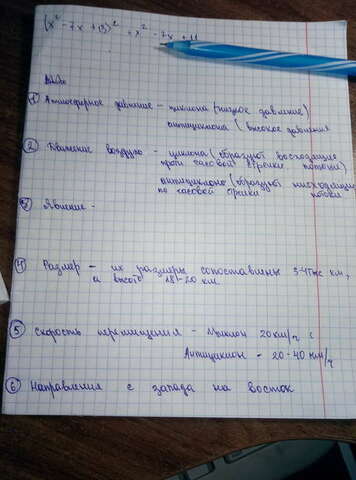 (x² - 7x + 13)² = x² - 7x + 11
① Атмосферное давление - циклона (низкое давление)
антициклона (высокое давление
② Движение воздуха - циклона (образуют восходящие
против часовой стрелки потоки)
антициклона (образуют нисходящие
по часовой стрелки потоки
③ Явление -
4) Размер - их размеры сопоставимы 3-4 тыс км,
а высота 18-20 км.
⑤ Скорость перемещения - Циклон 20 км/ч
Антициклон - 20-40 км/ч
⑥ Направления с запада на восток